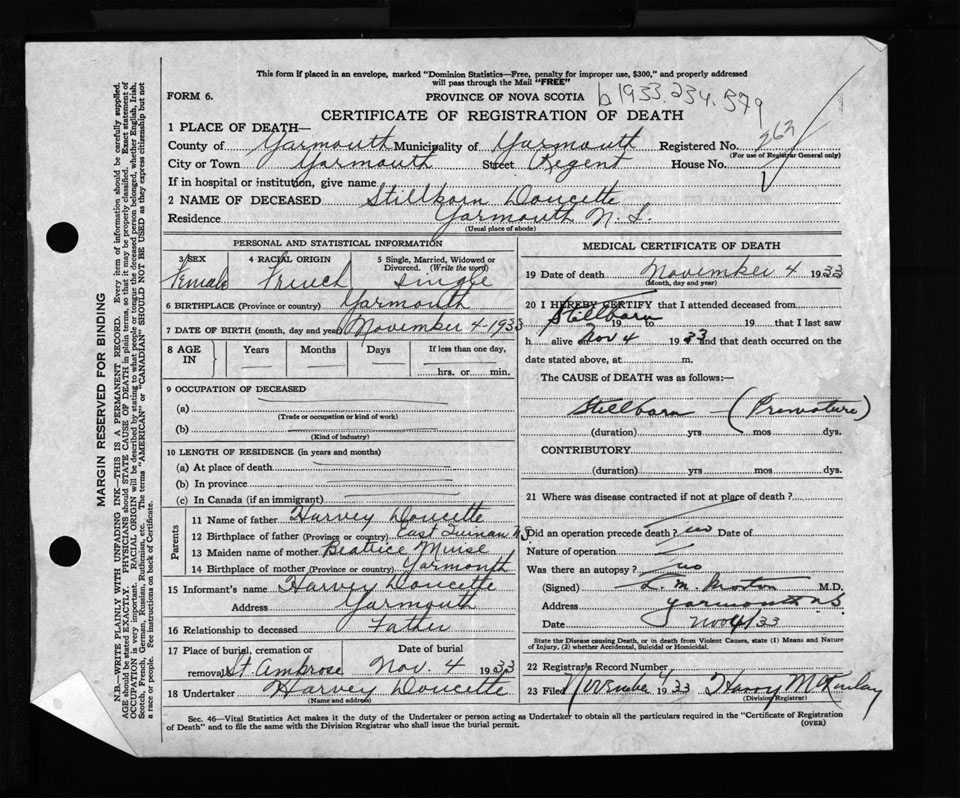 This form if placed in an envelope, marked "Dominion Statistics—Free, penalty for improper use, $300," and properly addressed
will pass through the Mail "FREE"
FORM 6.
PROVINCE OF NOVA SCOTIA
b 1933.234.579
CERTIFICATE OF REGISTRATION OF DEATH
1 PLACE OF DEATH—
County of Yarmouth Municipality of Yarmouth Registered No. 263
(For use of Registrar General only)
City or Town Yarmouth Street Regent House No.
If in hospital or institution, give name
2 NAME OF DECEASED Stillborn Doucette
Residence Yarmouth N. S.
(Usual place of abode)
PERSONAL AND STATISTICAL INFORMATION
3 SEX 4 RACIAL ORIGIN 5 Single, Married, Widowed or Divorced. (Write the word)
Female French Single
6 BIRTHPLACE (Province or country) Yarmouth
7 DATE OF BIRTH (month, day and year) November 4-1933
8 AGE IN Years Months Days If less than one day,
hrs. or min.
9 OCCUPATION OF DECEASED
(a)
(Trade or occupation or kind of work)
(b)
(Kind of industry)
10 LENGTH OF RESIDENCE (in years and months)
(a) At place of death
(b) In province
(c) In Canada (if an immigrant)
Parents
11 Name of father Harvey Doucette
12 Birthplace of father (Province or country) East Quinan N.S.
13 Maiden name of mother Beatrice Muise
14 Birthplace of mother (Province or country) Yarmouth
15 Informant's name Harvey Doucette
Address Yarmouth
16 Relationship to deceased Father
17 Place of burial, cremation or removal Date of burial
St. Ambrose Nov. 4 1933
18 Undertaker Harvey Doucette
(Name and address)
MEDICAL CERTIFICATE OF DEATH
19 Date of death November 4 1933
(Month, day and year)
20 I HEREBY CERTIFY that I attended deceased from
Stillborn
19 to 19 that I last saw
h alive Nov 4 19 33 and that death occurred on the
date stated above, at m.
The CAUSE of DEATH was as follows:—
Stillborn — (Premature)
(duration) yrs mos dys.
CONTRIBUTORY
(duration) yrs mos dys.
21 Where was disease contracted if not at place of death ?
Did an operation precede death ? no Date of
Nature of operation
Was there an autopsy ? no
(Signed) M.D.
Address Yarmouth N.S.
Date Nov 4/33
State the Disease causing Death, or in death from Violent Causes, state (1) Means and Nature
of Injury, (2) whether Accidental, Suicidal or Homicidal.
22 Registrar's Record Number
23 Filed November 4 1933 Harry McKinlay
(Division Registrar)
Sec. 46—Vital Statistics Act makes it the duty of the Undertaker or person acting as Undertaker to obtain all the particulars required in the "Certificate of Registration
of Death" and to file the same with the Division Registrar who shall issue the burial permit.
(OVER)
MARGIN RESERVED FOR BINDING
N.B.—WRITE PLAINLY WITH UNFADING INK—THIS IS A PERMANENT RECORD. Every item of information should be carefully supplied.
AGE should be stated EXACTLY. PHYSICIANS should STATE CAUSE OF DEATH in plain terms, so that it may be properly classified. Exact statement of
OCCUPATION is very important. RACIAL ORIGIN will be described by stating to what people or tongue the deceased person belonged, whether English, Irish,
Scotch, French, German, Russian, Ruthenian, etc. The terms "AMERICAN" or "CANADIAN" SHOULD NOT BE USED as they express citizenship but not
a race or people. See instructions on back of Certificate.